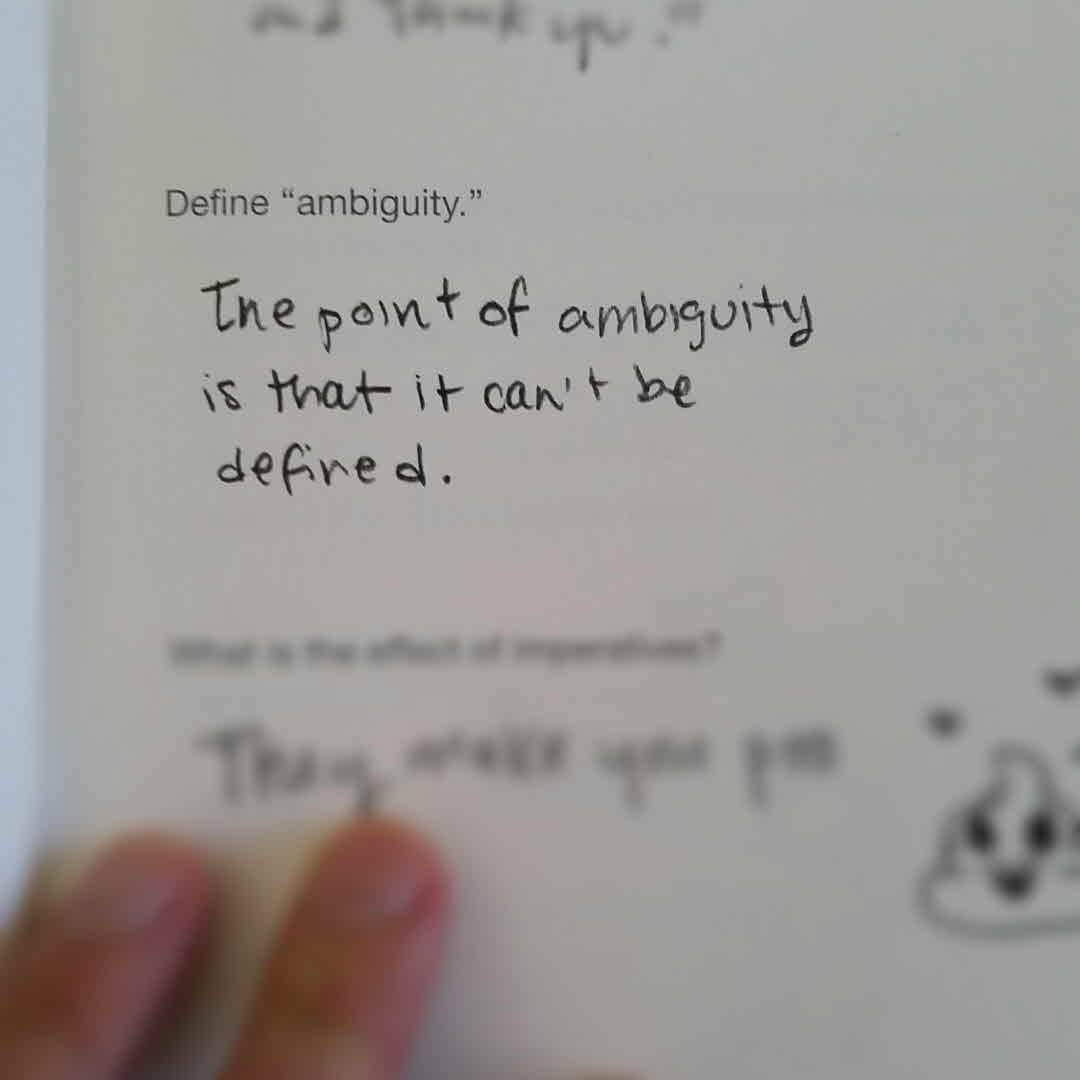 and thank you."
Define “ambiguity.”
The point of ambiguity
is that it can't be
defined.
What is the effect of imperatives?
They make you poo